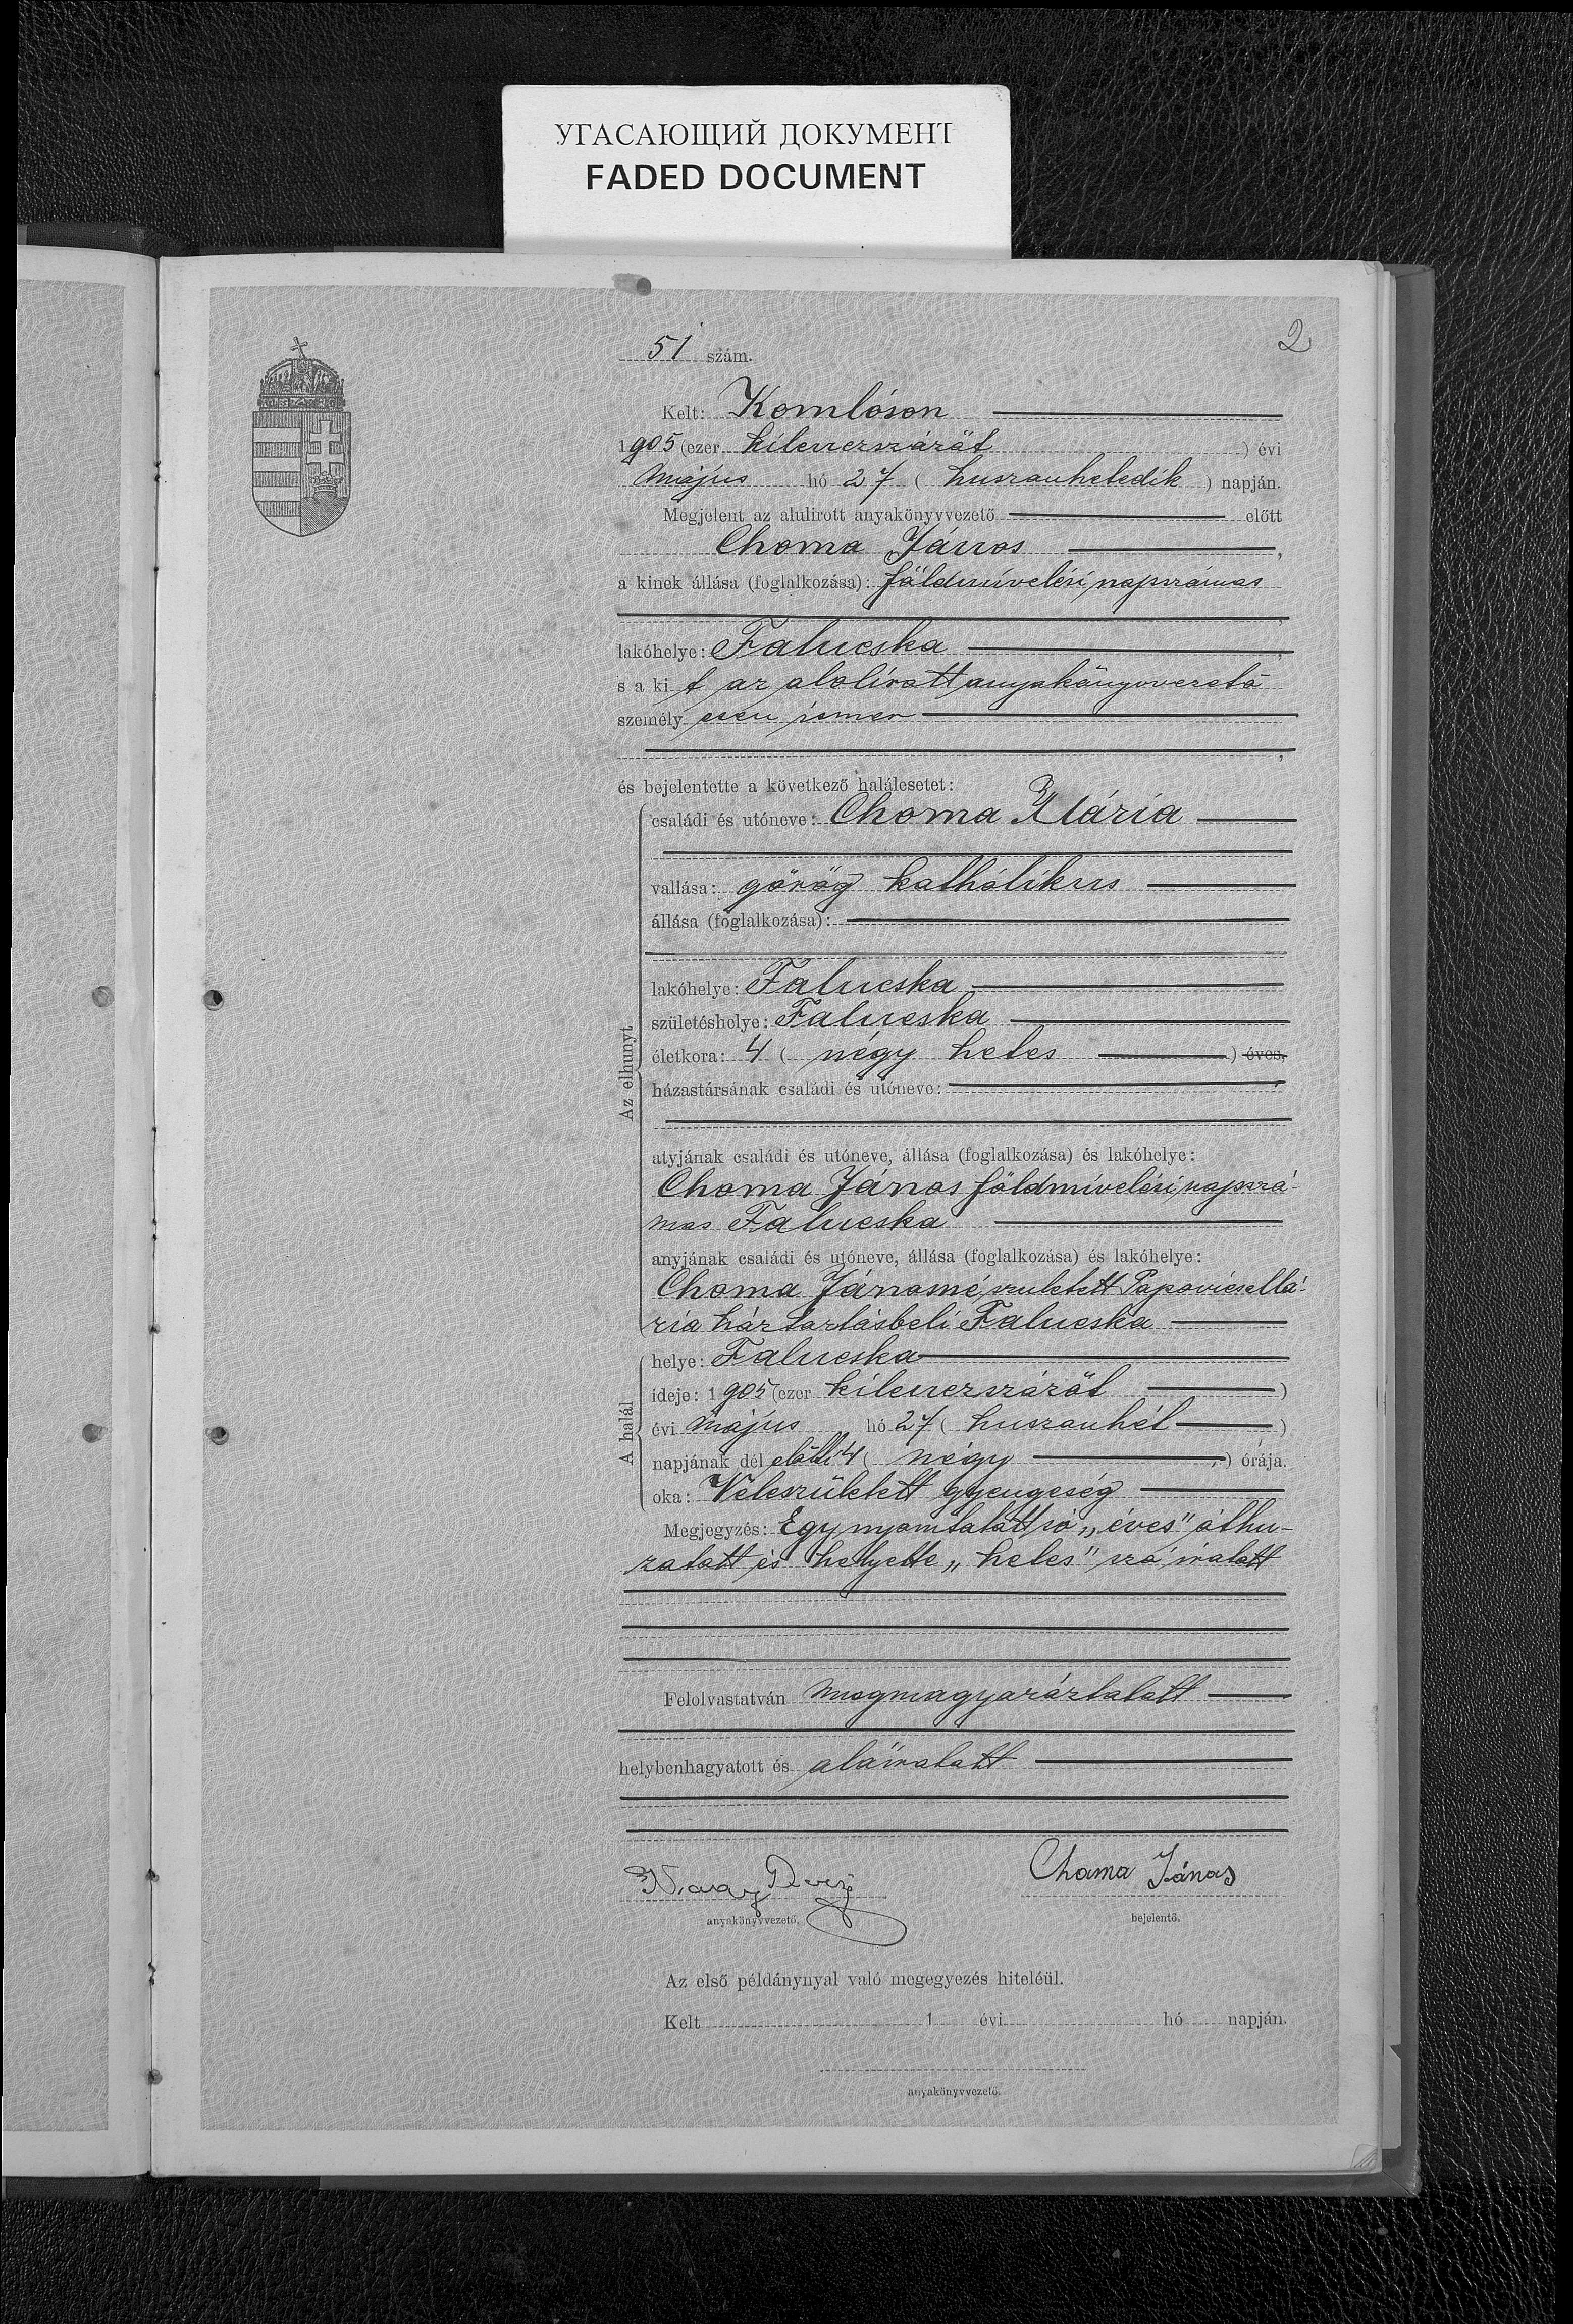 УГАСАЮЩИЙ ДОКУМЕНТ
FADED DOCUMENT
2
51 szám.
Kelt: Komlóson
1905 (ezer kilenczszázöt ) évi
május hó 27 ( huszonhetedik ) napján.
Megjelent az alulirott anyakönyvvezető előtt
Choma János ,
a kinek állása (foglalkozása): földmívelési napszámos
,
lakóhelye: Falucska ,
s a kit az alolírott anyakönyvvezető
személyesen ismer
,
és bejelentette a következő halálesetet:
Az elhunyt
családi és utóneve: Choma Mária
vallása: görög katholikus
állása (foglalkozása):
lakóhelye: Falucska
születéshelye: Falucska
életkora: 4 ( négy hetes ) éves,
házastársának családi és utóneve:
atyjának családi és utóneve, állása (foglalkozása) és lakóhelye:
Choma János földmívelési napszá-
mos Falucska
anyjának családi és utóneve, állása (foglalkozása) és lakóhelye:
Choma Jánosné született Popovics Má-
ria háztartásbeli Falucska
A halál
helye: Falucska
ideje: 1905 (ezer kilenczszázöt )
évi május hó 27 ( huszonhét )
napjának dél előtti 4 ( négy ) órája.
oka: Veleszületett gyengeség
Megjegyzés: Egy nyomtatott szó „éves" áthu-
zatott és helyette „hetes" szó iratott
Felolvastatván megmagyaráztatott
helybenhagyatott és aláíratott
Choma János
anyakönyvvezető. bejelentő.
Az első példánynyal való megegyezés hiteléül.
Kelt 1 évi hó napján.
anyakönyvvezető.